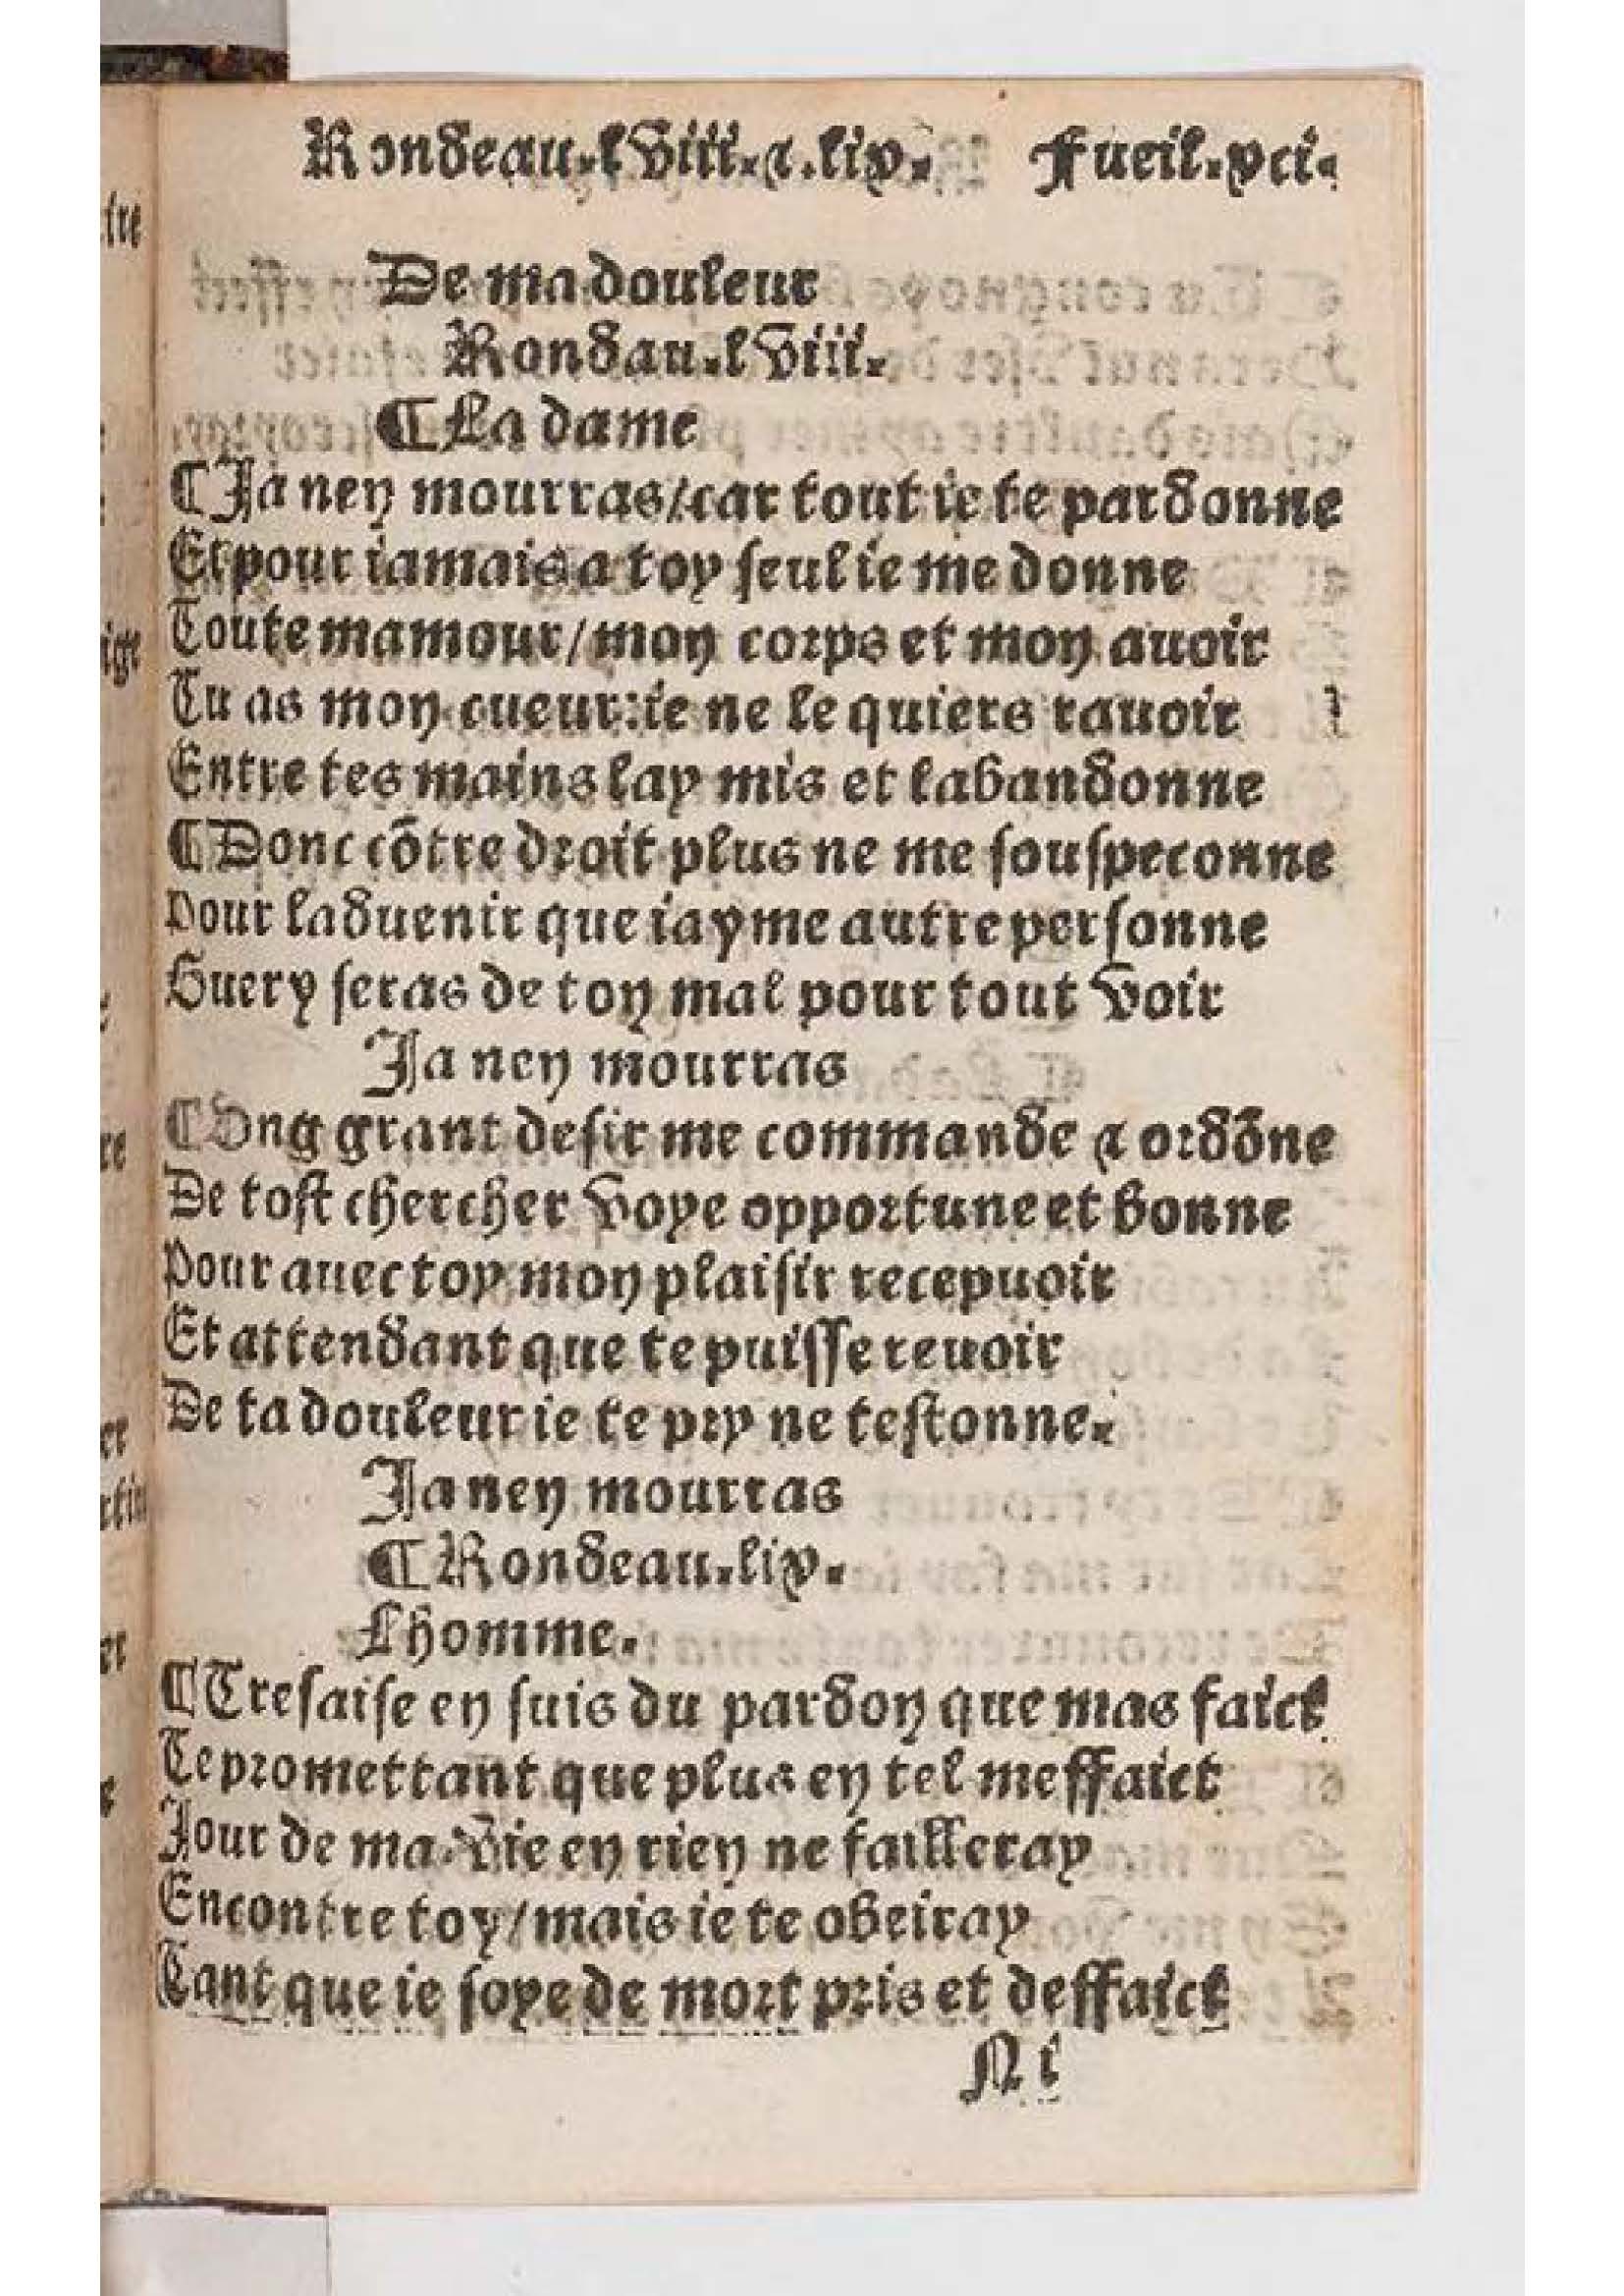 Rondeau.lviii.&.lix. Fueil.xci.
De ma douleur
Rondau.lviii.
¶La dame
¶Ja nen mourras/car tout ie te pardonne
Et pour iamais a toy seul ie me donne
Toute mamour/mon corps et mon auoir
Tu as mon cueur:ie ne le quiers rauoir
Entre tes mains lay mis et labandonne
¶Donc cõtre droit plus ne me souspeconne
Pour laduenir que iayme autre personne
Guery seras de ton mal pour tout voir
Ja nen mourras
¶Ung grant desir me commande & ordõne
De tost chercher voye opportune et bonne
Pour auec toy mon plaisir recepuoir
Et attendant que te puisse reuoir
De ta douleur ie te pry ne testonne.
Ja nen mourras
¶Rondeau.lix.
Lhomme.
¶Tresaise en suis du pardon que mas faict
Te promettant que plus en tel meffaict
Jour de ma vie en rien ne failleray
Encontre toy/mais ie te obeiray
Tant que ie soye de mort pris et deffaict
N i